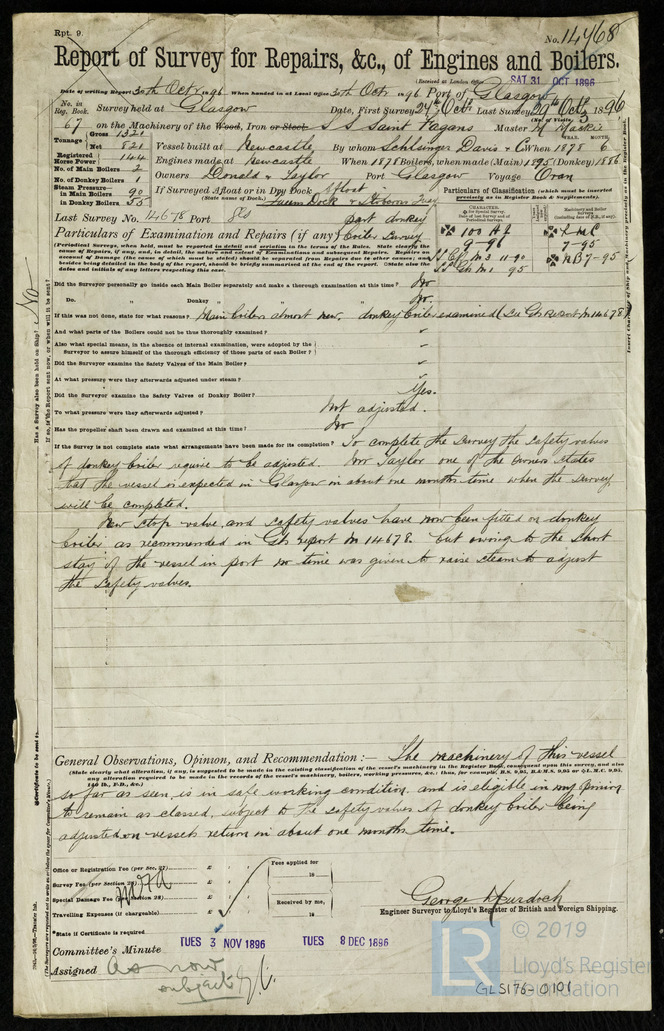 Rpt. 9.
No. 14768
Report of Survey for Repairs, &c., of Engines and Boilers.
(Received at London Office SAT. 31 OCT 1896
Date of writing Report 30th Octr 1896 When handed in at Local Office 30th Octr 1896 Port of Glasgow
No. in Reg. Book. Survey held at Glasgow Date, First Survey 24th Octr Last Survey 29th Octr 1896
(No. of Visits 3)
67 on the Machinery of the Wood, Iron or Steel S S Saint Fagans Master Mackie
Tonnage Gross 1321
Net 821
Vessel built at Newcastle By whom Schlesinger Davis & Co When 1878 YEAR. 6 MONTH.
Registered Horse Power 144
Engines made at Newcastle When 1878 Boilers, when made (Main) 1895 (Donkey) 1886
No. of Main Boilers 2
No. of Donkey Boilers 1
Owners Donald & Taylor Port Glasgow Voyage Oran
Steam Pressure in Main Boilers 90
in Donkey Boilers 55
If Surveyed Afloat or in Dry Dock Afloat
(State name of Dock.) Queens Dock &
Particulars of Classification (which must be inserted precisely as in Register Book & Supplements).
Last Survey No. 14678 Port Gls
part donkey
Particulars of Examination and Repairs (if any) boiler survey
CHARACTER.
Machinery and Boiler Surveys
100 A1
9-96
SS Gls No 3 11-90
SS Gls No 1 95
LMC
7-95
NB 7-95
(Periodical Surveys, when held, must be reported in detail and seriatim in the terms of the Rules. State clearly the cause of Repairs, if any, and, in detail, the nature and extent of Examinations and subsequent Repairs. Repairs on account of Damage (the cause of which must be stated) should be separated from Repairs due to other causes; and besides being detailed in the body of the report, should be briefly summarised at the end of the report. State also the dates and initials of any letters respecting this case.
Did the Surveyor personally go inside each Main Boiler separately and make a thorough examination at this time? No
Do. " Donkey " " " " " No.
If this was not done, state for what reasons? Main boilers almost new. donkey boiler examined (see Gls Report No 14678)
And what parts of the Boilers could not be thus thoroughly examined? "
Also what special means, in the absence of internal examination, were adopted by the Surveyor to assure himself of the thorough efficiency of those parts of each Boiler? "
Did the Surveyor examine the Safety Valves of the Main Boiler? "
At what pressure were they afterwards adjusted under steam? "
Did the Surveyor examine the Safety Valves of Donkey Boiler? Yes.
To what pressure were they afterwards adjusted? Not adjusted.
Has the propeller shaft been drawn and examined at this time? No
If the Survey is not complete state what arrangements have been made for its completion? To complete the survey the safety valves
of donkey boiler require to be adjusted. Mr Taylor one of the owners states
that the vessel is expected in Glasgow in about one months time when the survey
will be completed.
New stop valve, and safety valves have now been fitted on donkey
boiler as recommended in Gls report No 14678. but owing to the short
stay of the vessel in port no time was given to raise steam to adjust
the safety valves.
General Observations, Opinion, and Recommendation:— The machinery of this vessel
(State clearly what alteration, if any, is suggested to be made in the existing classification of the vessel's machinery in the Register Book, consequent upon this survey, and also any alteration required to be made in the records of the vessel's machinery, boilers, working pressures, &c.; thus, for example, B.S. 9,95, B.&M.S. 9,95 or L.M.C. 9,95, 140 lb., F.D., &c.)
so far as seen, is in safe working condition, and is eligible in my opinion
to remain as classed, subject to the safety valves of donkey boiler being
adjusted on vessels return in about one months time.
Office or Registration Fee (per Sec. 27) £
Survey Fee (per Section 28) £
Special Damage Fee (per Section 28) £
Travelling Expenses (if chargeable) £
Fees applied for
18
Received by me,
18
George Murdoch
Engineer Surveyor to Lloyd's Register of British and Foreign Shipping.
*State if Certificate is required
Committee's Minute TUES 3 NOV 1896 TUES 8 DEC 1896
Assigned As now
subject
© 2019
LR
Lloyd's Register
Foundation
GLS176-0101
Has a Survey also been held on Ship? No
If so, is the Report sent now, or when will it be sent?